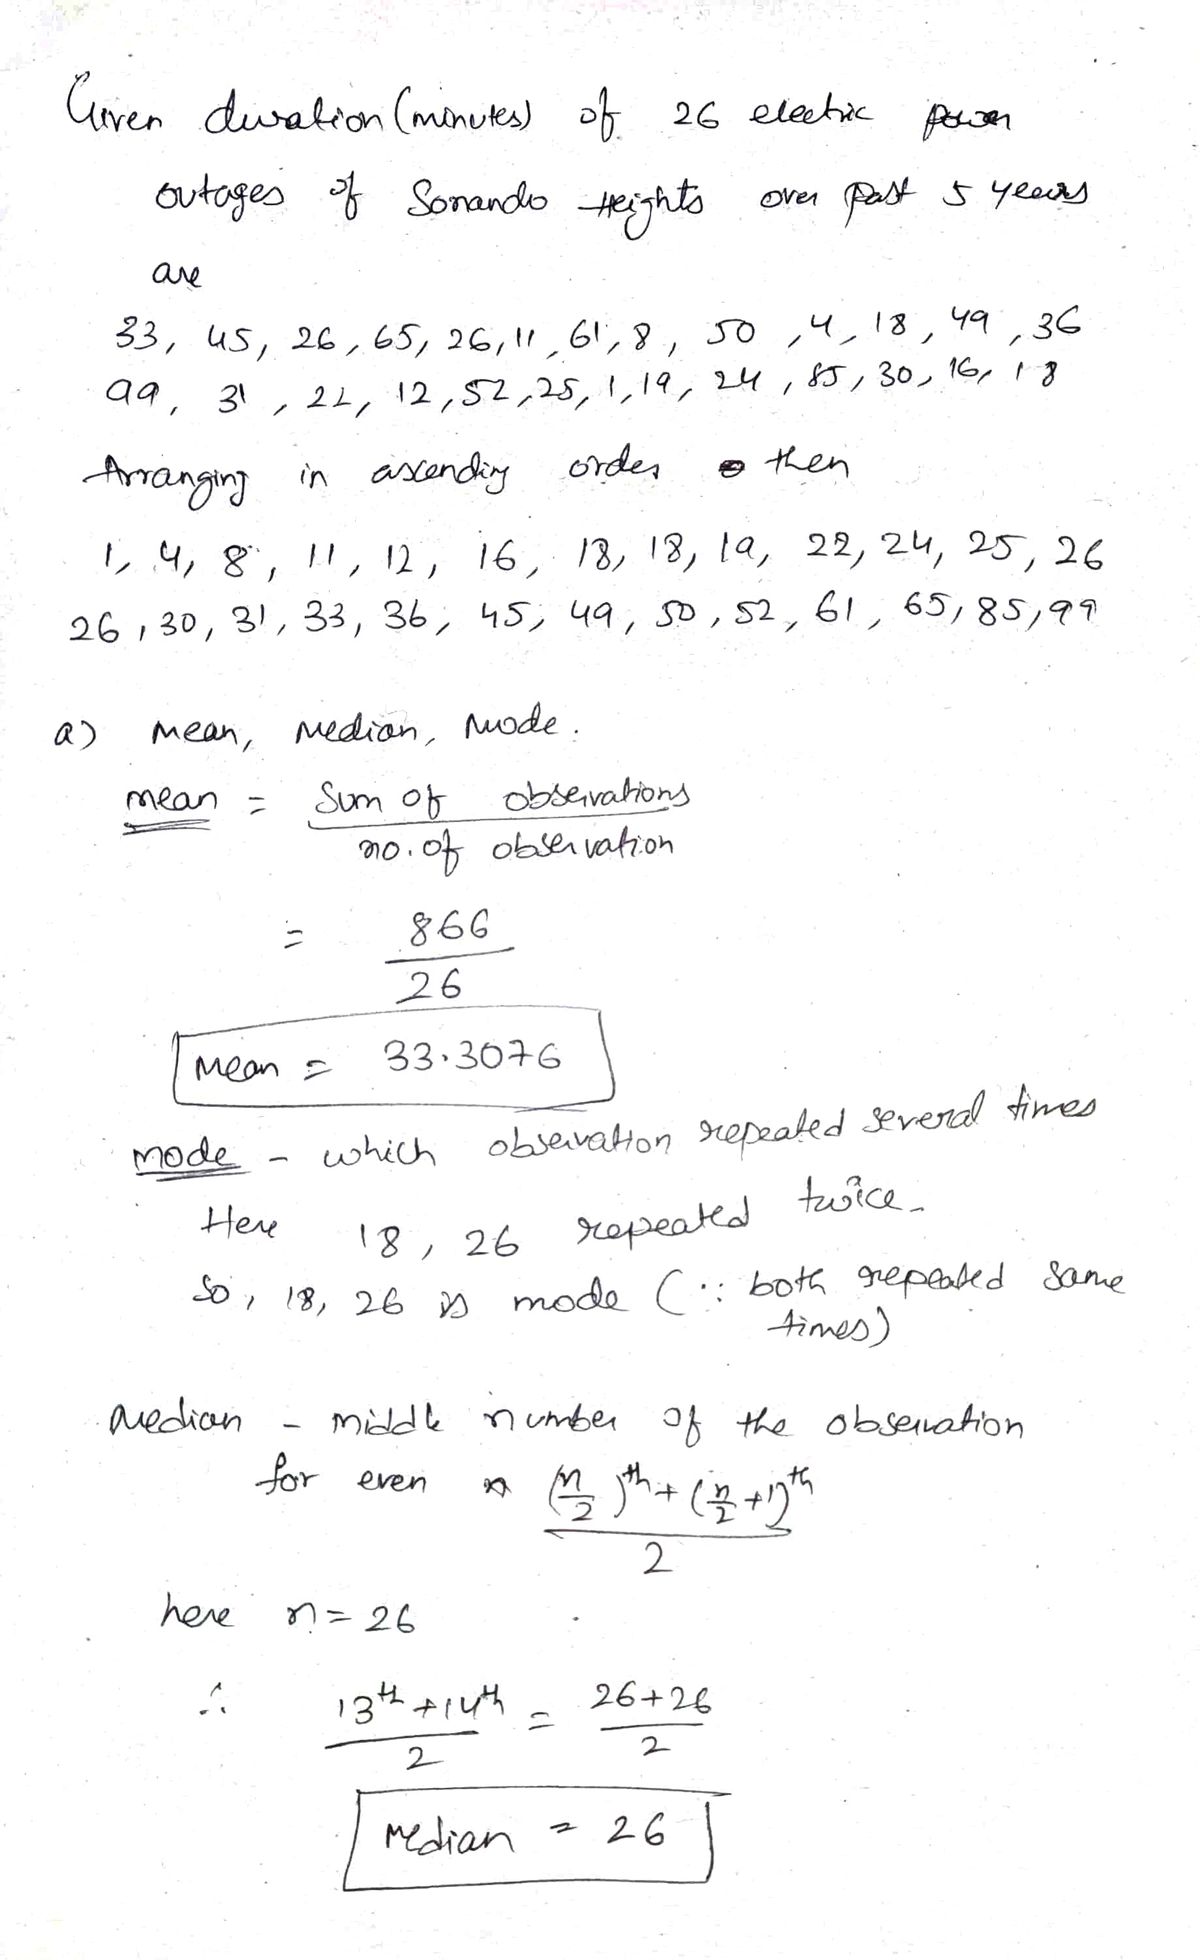 Given duration (minutes) of 26 electric power
outages of Sonando Heights over past 5 years
are
33, 45, 26, 65, 26, 11, 61, 8, 50, 4, 18, 49, 36
99, 31, 22, 12, 52, 25, 1, 19, 24, 85, 30, 16, 18
Arranging in ascending order then
1, 4, 8, 11, 12, 16, 18, 18, 19, 22, 24, 25, 26
26, 30, 31, 33, 36, 45, 49, 50, 52, 61, 65, 85, 99
a) mean, Median, Mode.
mean = Sum of observations
no. of observation
= 866
26
Mean = 33.3076
mode - which observation repeated several times
Here 18, 26 repeated twice.
So, 18, 26 is mode (∵ both repeated same
times)
Median - middle number of the observation
for even n (n/2)th + (n/2 + 1)th
2
here n = 26
∴ 13th + 14th = 26+26
2 2
Median = 26